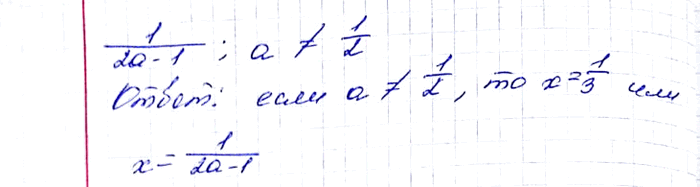 1/(2a-1); a ≠ 1/2
Ответ: если a ≠ 1/2, то x = 1/3 или
x = 1/(2a-1)